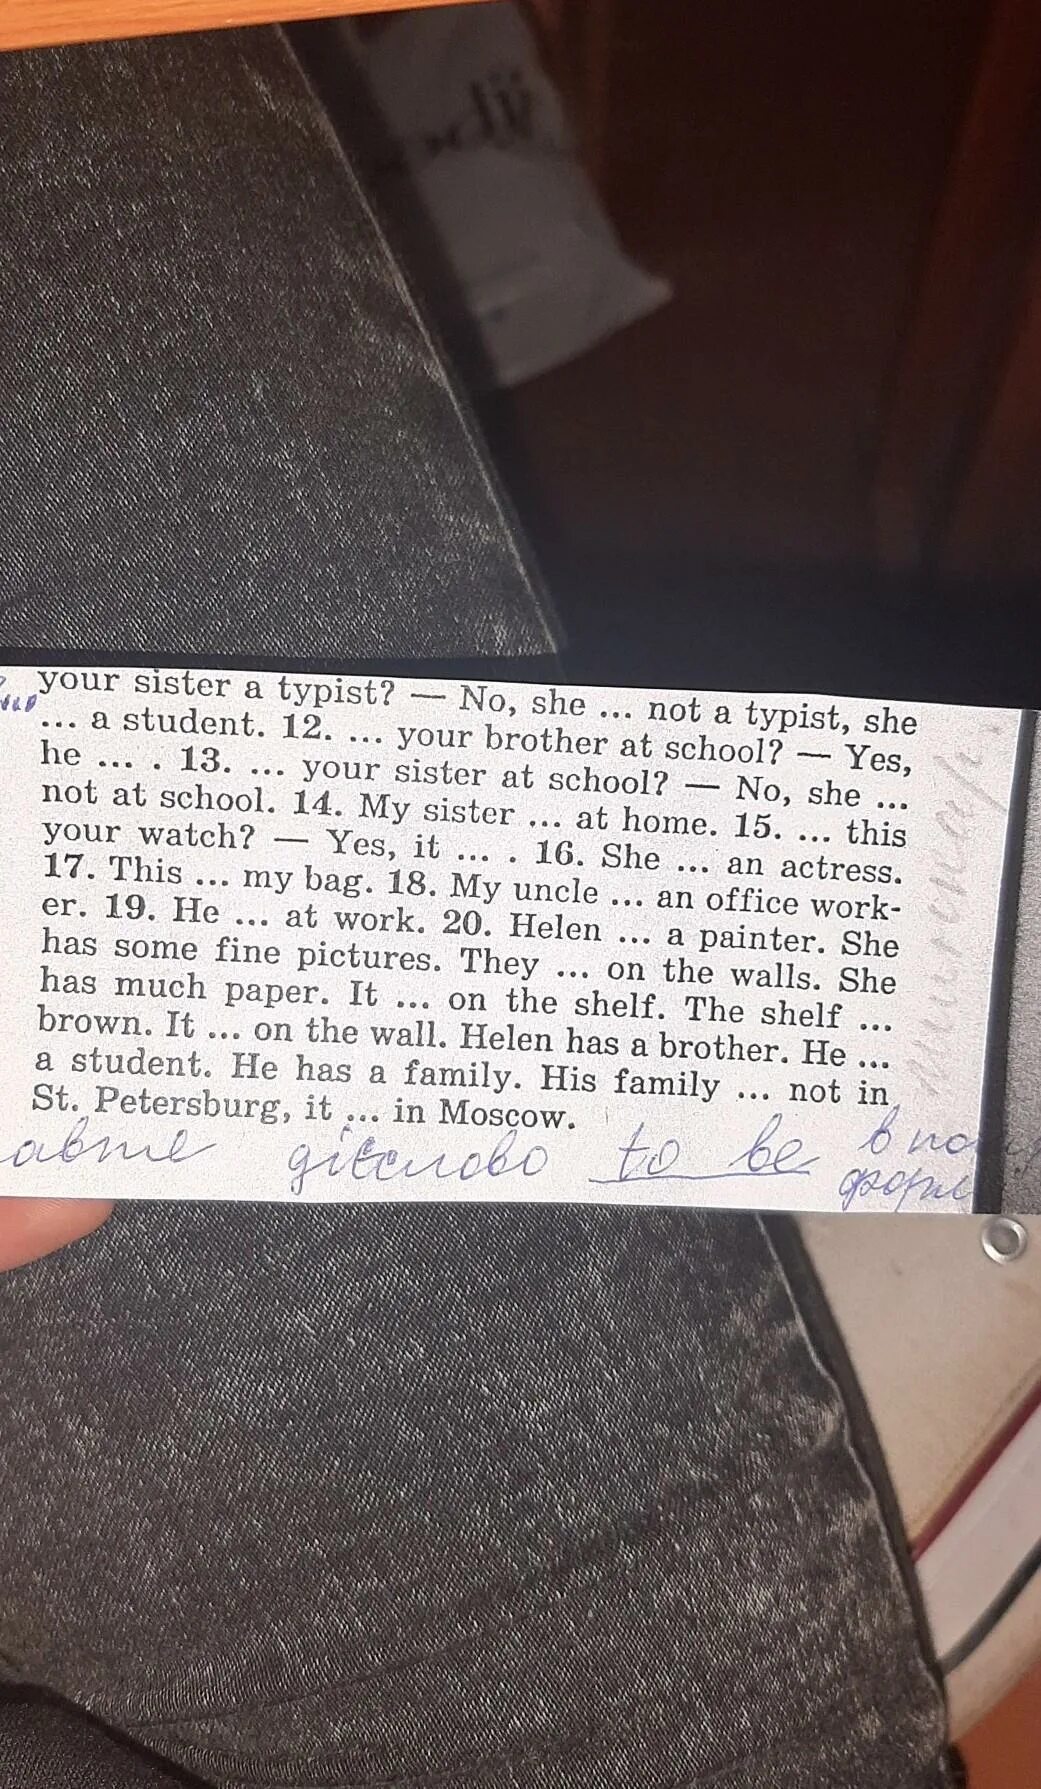 your sister a typist? — No, she ... not a typist, she
... a student. 12. ... your brother at school? — Yes,
he ... . 13. ... your sister at school? — No, she ...
not at school. 14. My sister ... at home. 15. ... this
your watch? — Yes, it ... . 16. She ... an actress.
17. This ... my bag. 18. My uncle ... an office work-
er. 19. He ... at work. 20. Helen ... a painter. She
has some fine pictures. They ... on the walls. She
has much paper. It ... on the shelf. The shelf ...
brown. It ... on the wall. Helen has a brother. He ...
a student. He has a family. His family ... not in
St. Petersburg, it ... in Moscow.
авте дієслово to be в
формі